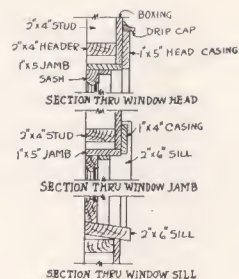 BOXING
2"x4" STUD
DRIP CAP
2"x4" HEADER
1"x5" HEAD CASING
1"x5 JAMB
SASH
SECTION THRU WINDOW HEAD
2"x4" STUD
1"x4" CASING
1"x5" JAMB
2"x6" SILL
SECTION THRU WINDOW JAMB
2"x6" SILL
SECTION THRU WINDOW SILL